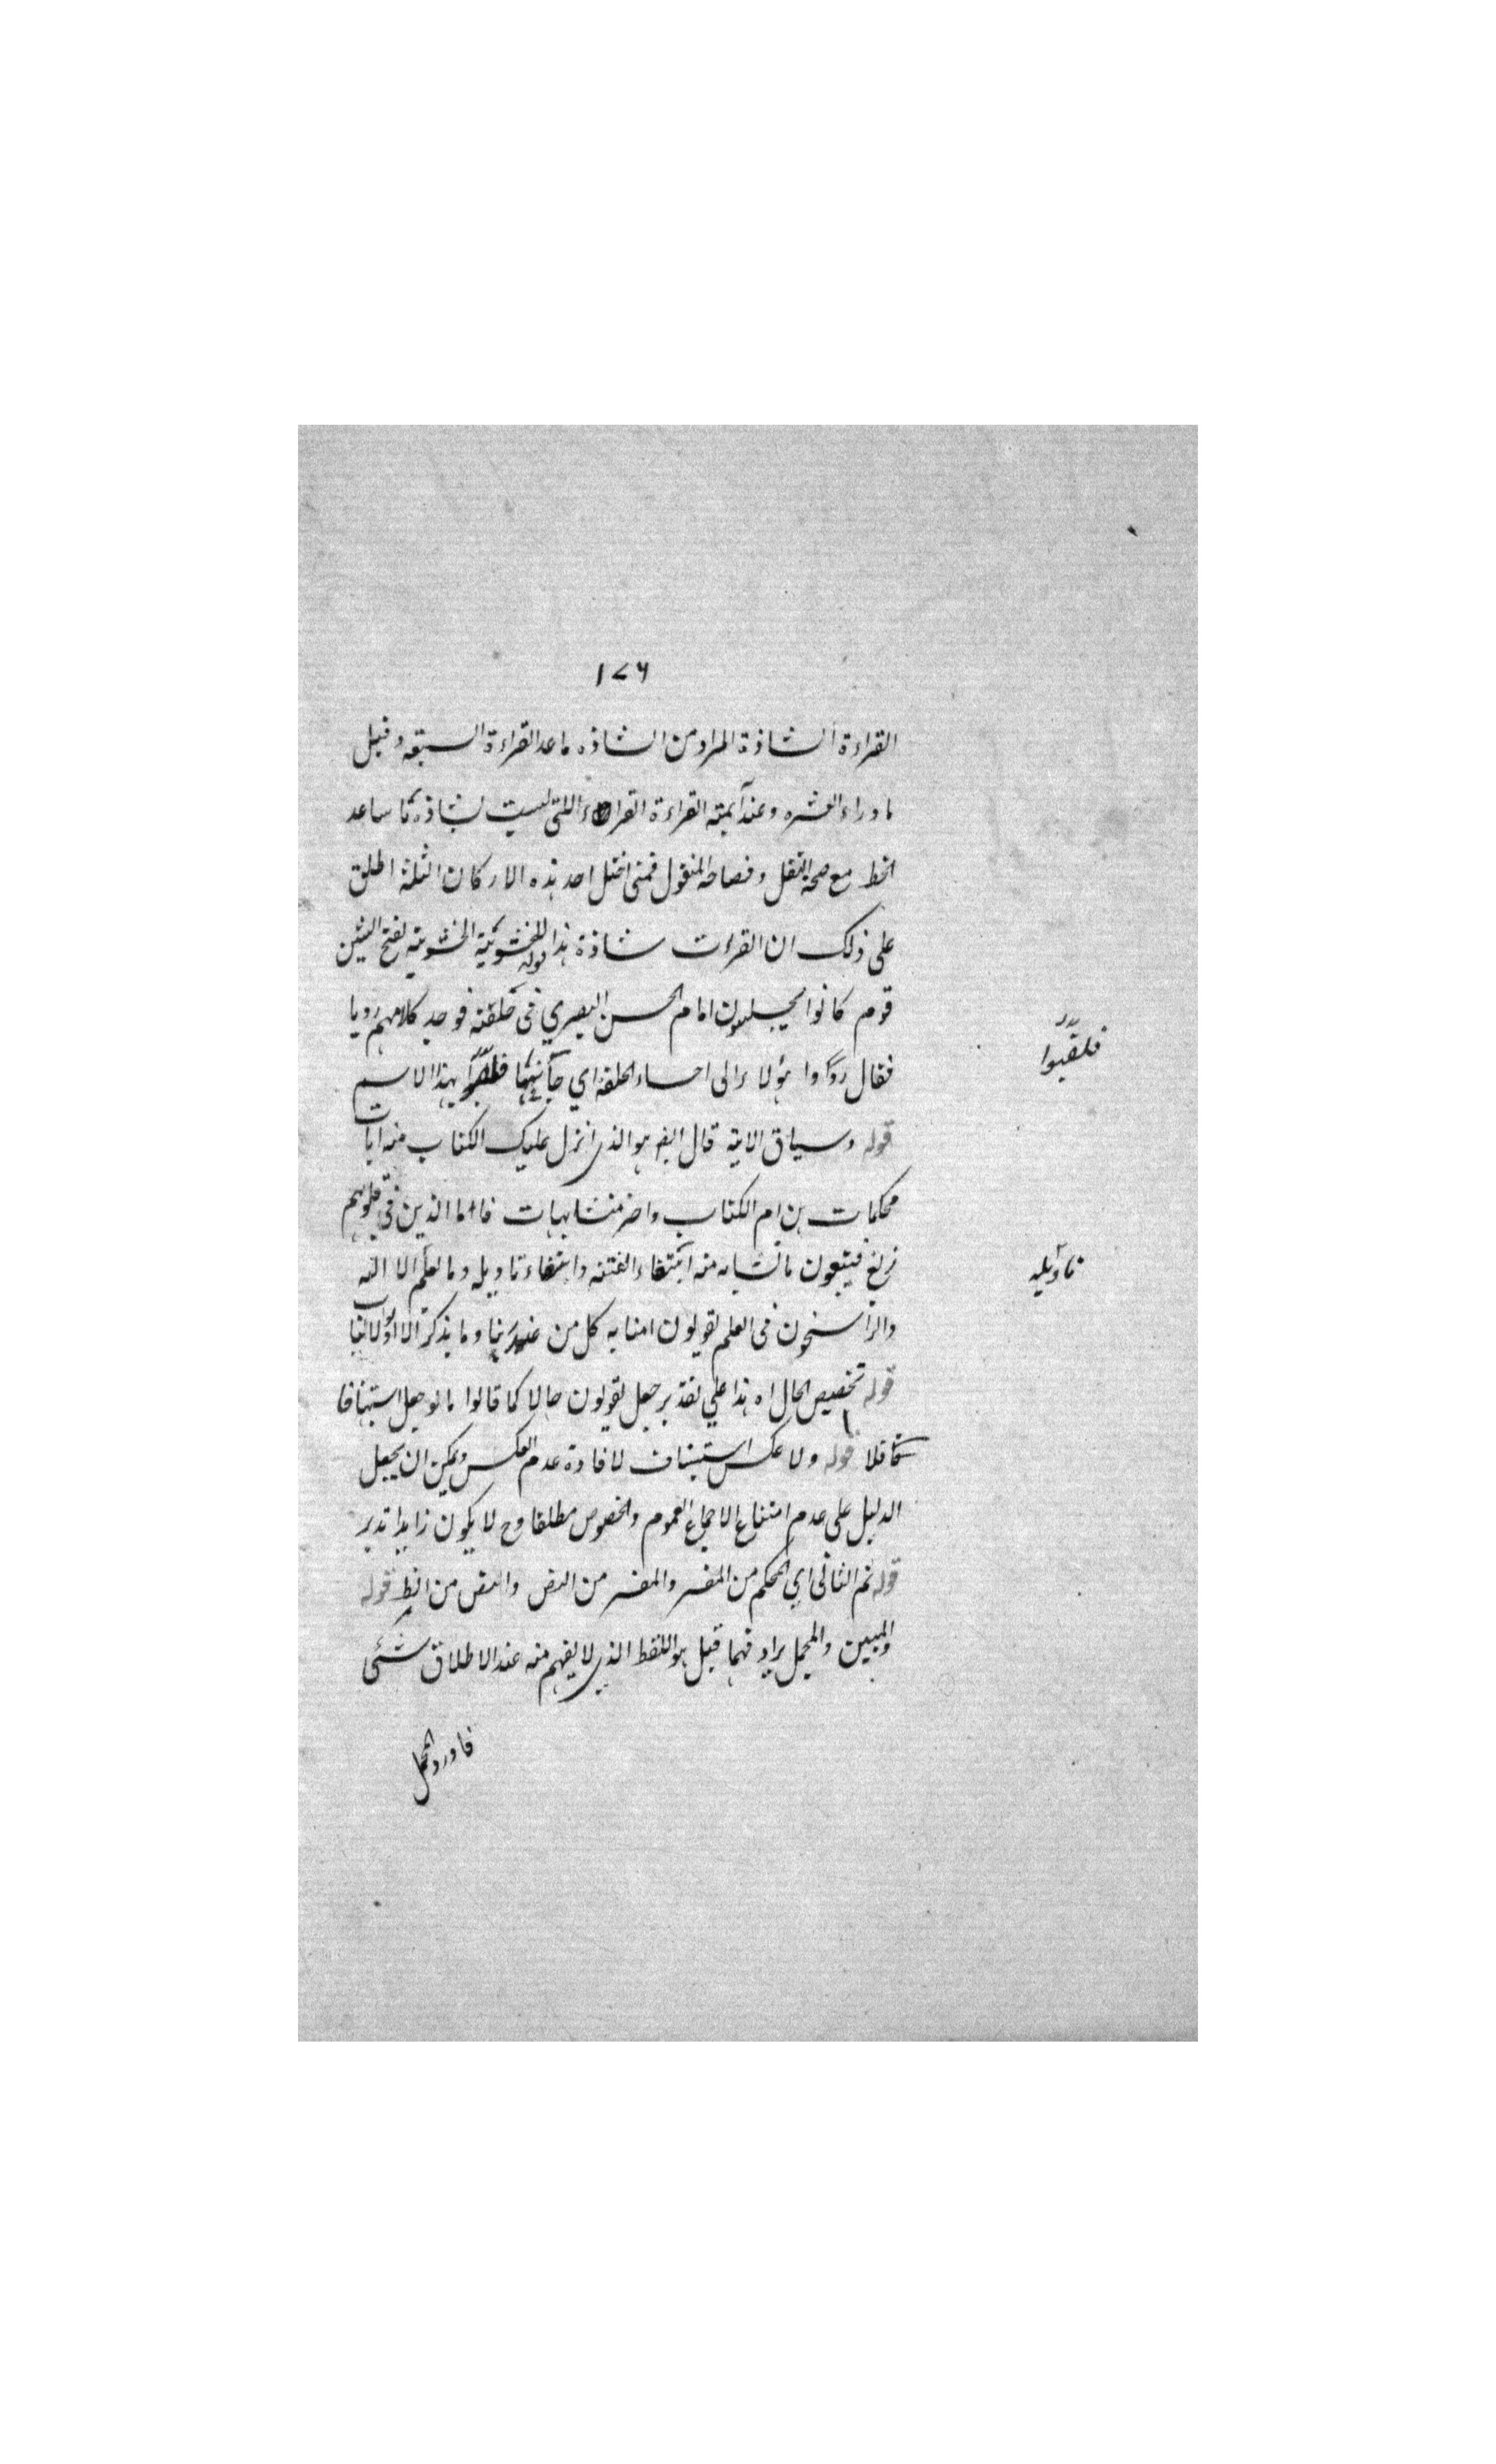 ١٧٦
القراءة الشاذة المراد من الشاذه ماعد القراءة السبعه وقيل
ما وراء العشره وعند آيمة القراءة القراءة اللتى ليست بشاذه ما ساعد
الخط مع صحة النقل وفصاحة المنقول فمتى اختل احد هذه الاركان الثلثة اطلق
على ذلك ان القراءت شاذة هذا قوله للحشوية الحشوية بفتح الشين
قوم كانوا يجلسون امام الحسن البصري فى حلقته فوجد كلامهم رديا
فقال ردّوا هؤلاء الى احساء الحلقة اى جآنبها بهذا الاسم
فلقبوا
قوله وسياق الاية قال الله هو الذى انزل عليك الكتاب منه ايات
محكمات هن ام الكتاب واخر متشابهات فاما الذين فى قلوبهم
زيغ فيتبعون ما تشابه منه ابتغاء الفتنه وابتغاء تاويله وما يعلم الا الله
تاويله
والراسخون فى العلم يقولون امنا به كل من عند ربنا وما يذكر الا اولو الالباب
قوله تخصيص الحال اه هذا على تقدير جعل يقولون حالا كما قالوا ما لو جعل استينافا
كما قلا قوله ولا عكس استيناف لافادة عدم العكس ويمكن ان يجعل
الدليل على عدم امتناع الاجماع العموم والخصوص مطلقا وح لا يكون زايدا تدبر
قوله ثم الثانى اى المحكم من المفسر والمفسر من النص والنص من الظ قوله
والمبين والمجمل يراد فهما قيل هو اللفظ الذى لا يفهم منه عند الاطلاق شئى
فاورد المجمل